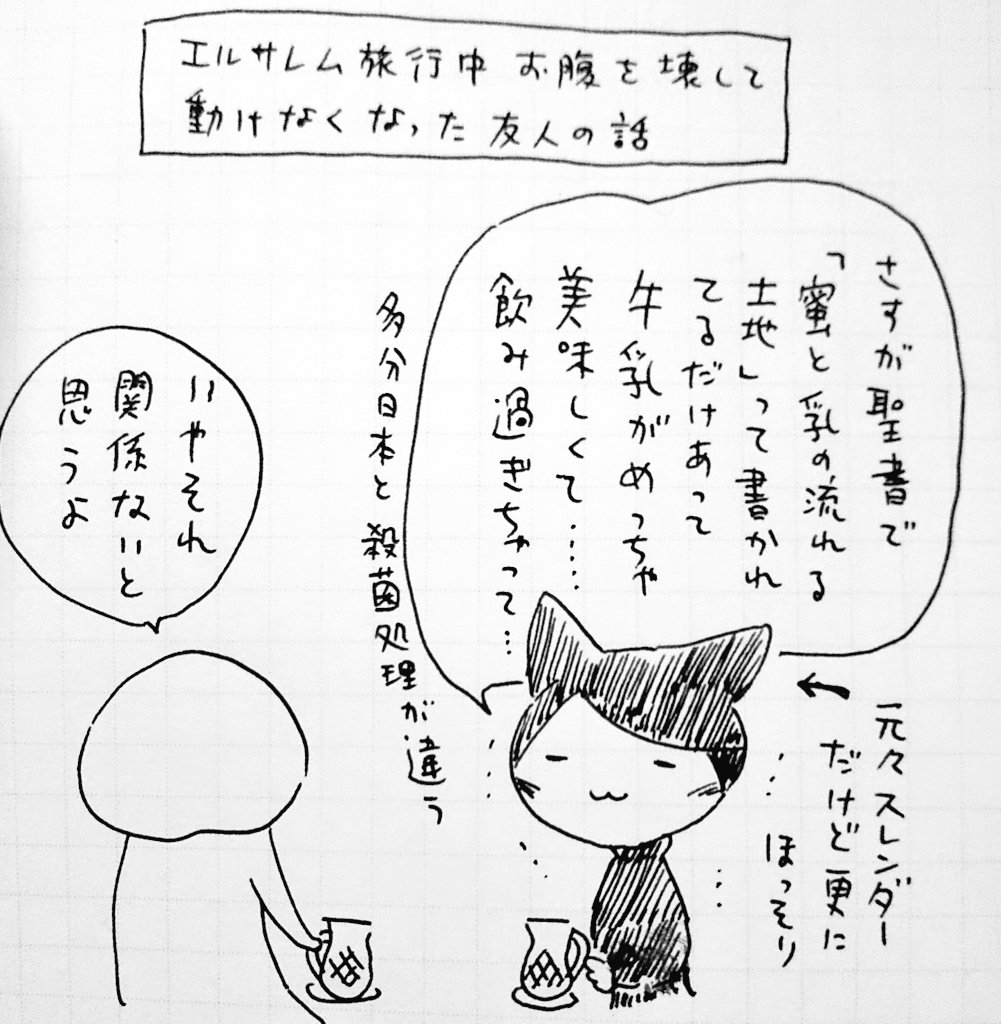 エルサレム旅行中 お腹を壊して
動けなくなった友人の話
さすが聖書で
「蜜と乳の流れる
土地」って書かれ
てるだけあって
牛乳がめっちゃ
美味しくて……
飲み過ぎちゃって…
多分日本と殺菌処理が違う
いやそれ
関係ないと
思うよ
元々スレンダー
だけど更に
ほっそり